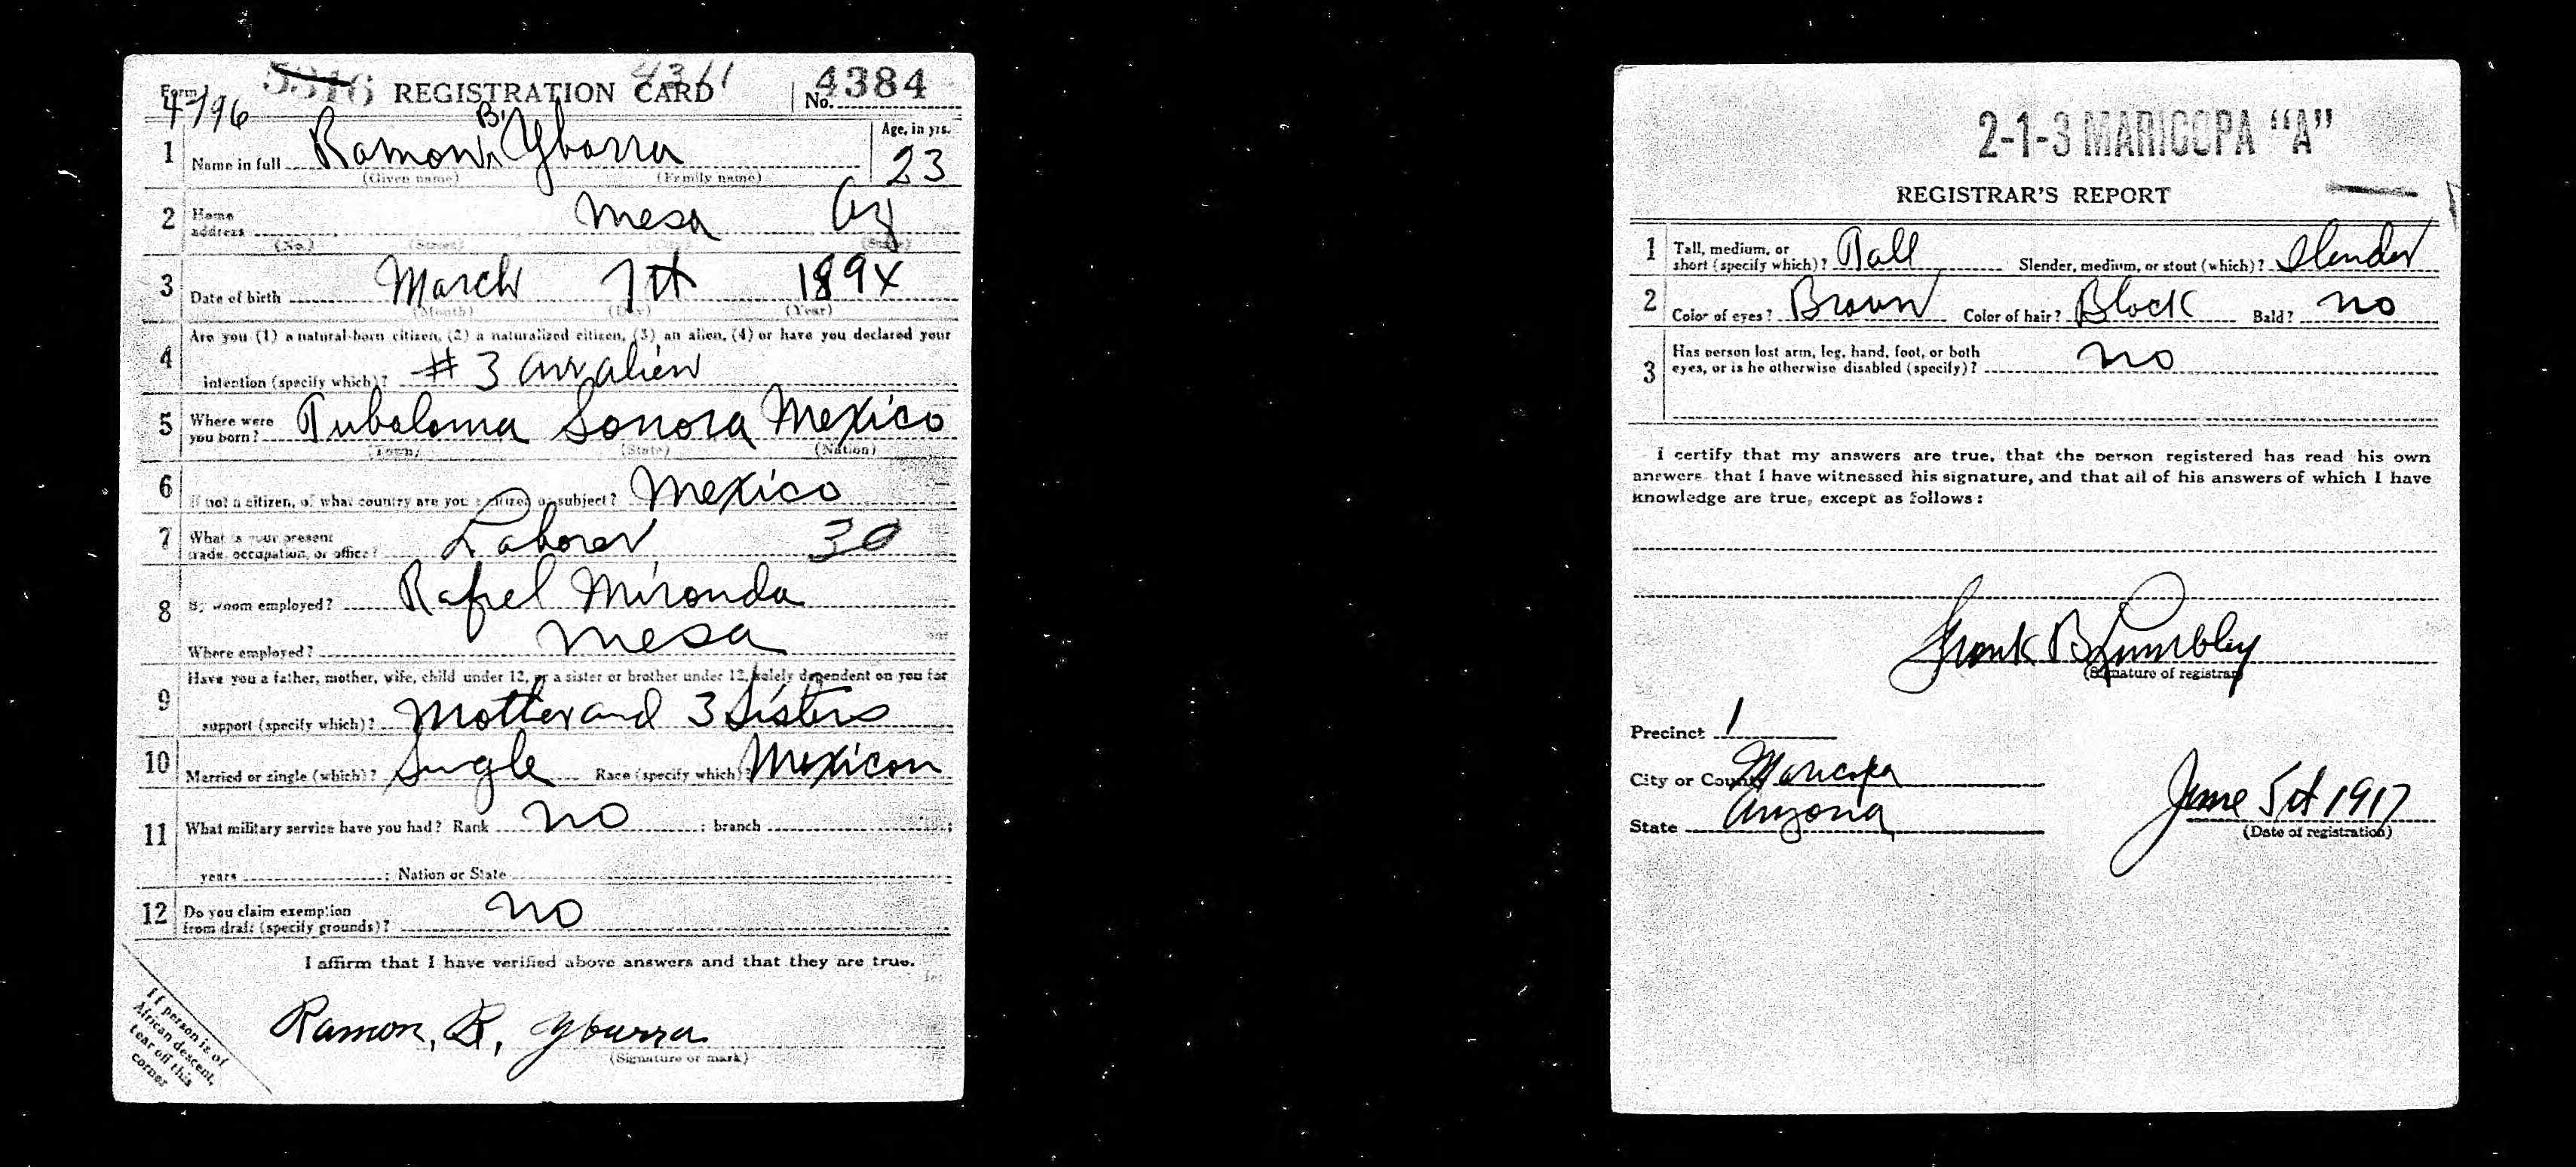 5316 4311
Form 1 REGISTRATION CARD No. 4384
4-196
B.
1 Name in full Ramon Ybarra Age, in yrs. 23
(Given name) (Family name)
2 Home address Mesa Az
(No.) (Street) (City) (State)
3 Date of birth March 7th 1894
(Month) (Day) (Year)
Are you (1) a natural-born citizen, (2) a naturalized citizen, (3) an alien, (4) or have you declared your
4 intention (specify which)? # 3 an alien
5 Where were you born? Tubaloma Sonora Mexico
(Town) (State) (Nation)
6 If not a citizen, of what country are you a citizen or subject? Mexico
7 What is your present trade, occupation, or office? Laborer 30
8 By whom employed? Rafiel Mironda
Where employed? Mesa
Have you a father, mother, wife, child under 12, or a sister or brother under 12, solely dependent on you for
9 support (specify which)? Mother and 3 Sisters
10 Married or single (which)? Single Race (specify which)? Mexican
11 What military service have you had? Rank no ; branch ;
years ; Nation or State
12 Do you claim exemption from draft (specify grounds)? no
I affirm that I have verified above answers and that they are true.
Ramon, B, Ybarra
(Signature or mark)
If person is of
African descent,
tear off this
corner
2-1-3 MARICOPA "A"
REGISTRAR'S REPORT
1 Tall, medium, or short (specify which)? Tall Slender, medium, or stout (which)? Slender
2 Color of eyes? Brown Color of hair? Black Bald? no
3 Has person lost arm, leg, hand, foot, or both
eyes, or is he otherwise disabled (specify)? no
I certify that my answers are true, that the person registered has read his own
answers that I have witnessed his signature, and that all of his answers of which I have
knowledge are true, except as follows:
Frank B
(Signature of registrar)
Precinct 1
City or County Maricopa
State Arizona
June 5th 1917
(Date of registration)